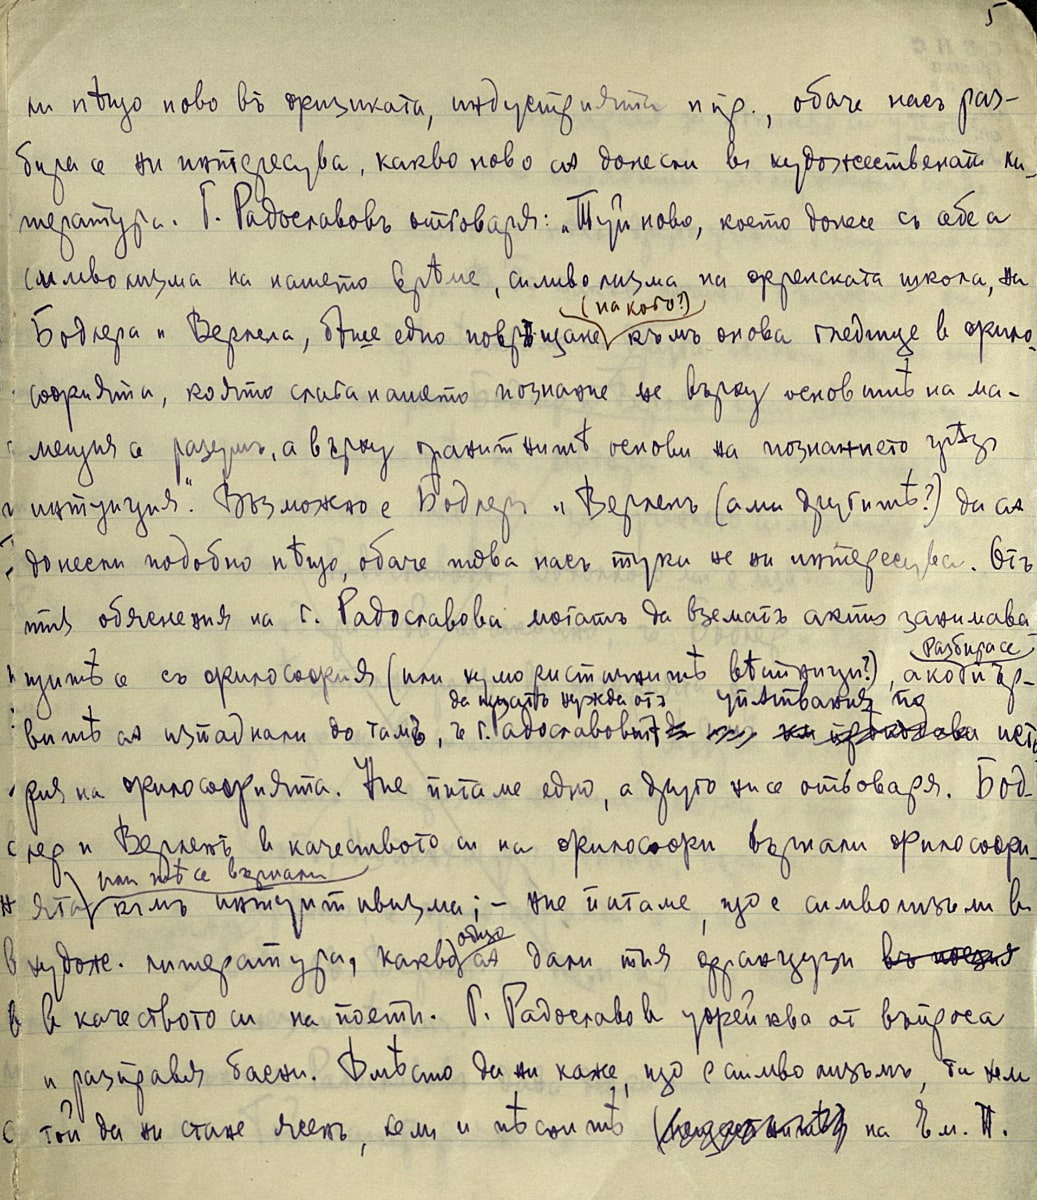 5
ли нѣщо ново въ физиката, индустрията и пр., обаче насъ раз-
бира се ни интересува, какво ново са донесли въ художествената ли-
тература. Г. Радославовъ отговаря: „Туй ново, което донесе съ себе си
символизма на нашето врѣме, символизма на френската школа, на
(на кого?)
Бодлера и Верлена, бѣше едно повръщане къмъ онова гледище в фило-
софията, която слага нашето познание не върху основитѣ на ма-
мещия се разумъ, а върху гранитнитѣ основи на познанието чрѣзъ
интуиция“. Възможно е Бодлеръ и Верленъ (ами другитѣ?) да са
донесли подобно нѣщо, обаче това насъ тука не ни интересува. Отъ
тия обяснения на г. Радославова могатъ да взематъ актъ занимава
разбира се
щитѣ се съ философия (или хумористичнитѣ вѣстници?), ако първ-
да иматъ нужда отъ упѫтвания по
витѣ са изпаднали до тамъ, г. Радославов исто
рия на философията. Ние питаме едно, а друго ни се отговаря. Бод-
лер и Верленъ в качеството си на философи върнали философи-
или тѣ се върнали
ята къмъ интуитивизма; – ние питаме, що е символизъм в
общо
худож. литература, какво са дали тия французи въ поезия
в качеството си на поети. Г. Радославов уфейква от въпроса
и разправя басни. Вмѣсто да ни каже, що е символизъмъ, та и
той да ни стане ясенъ, нели и пѣснитѣ на Ем. П.